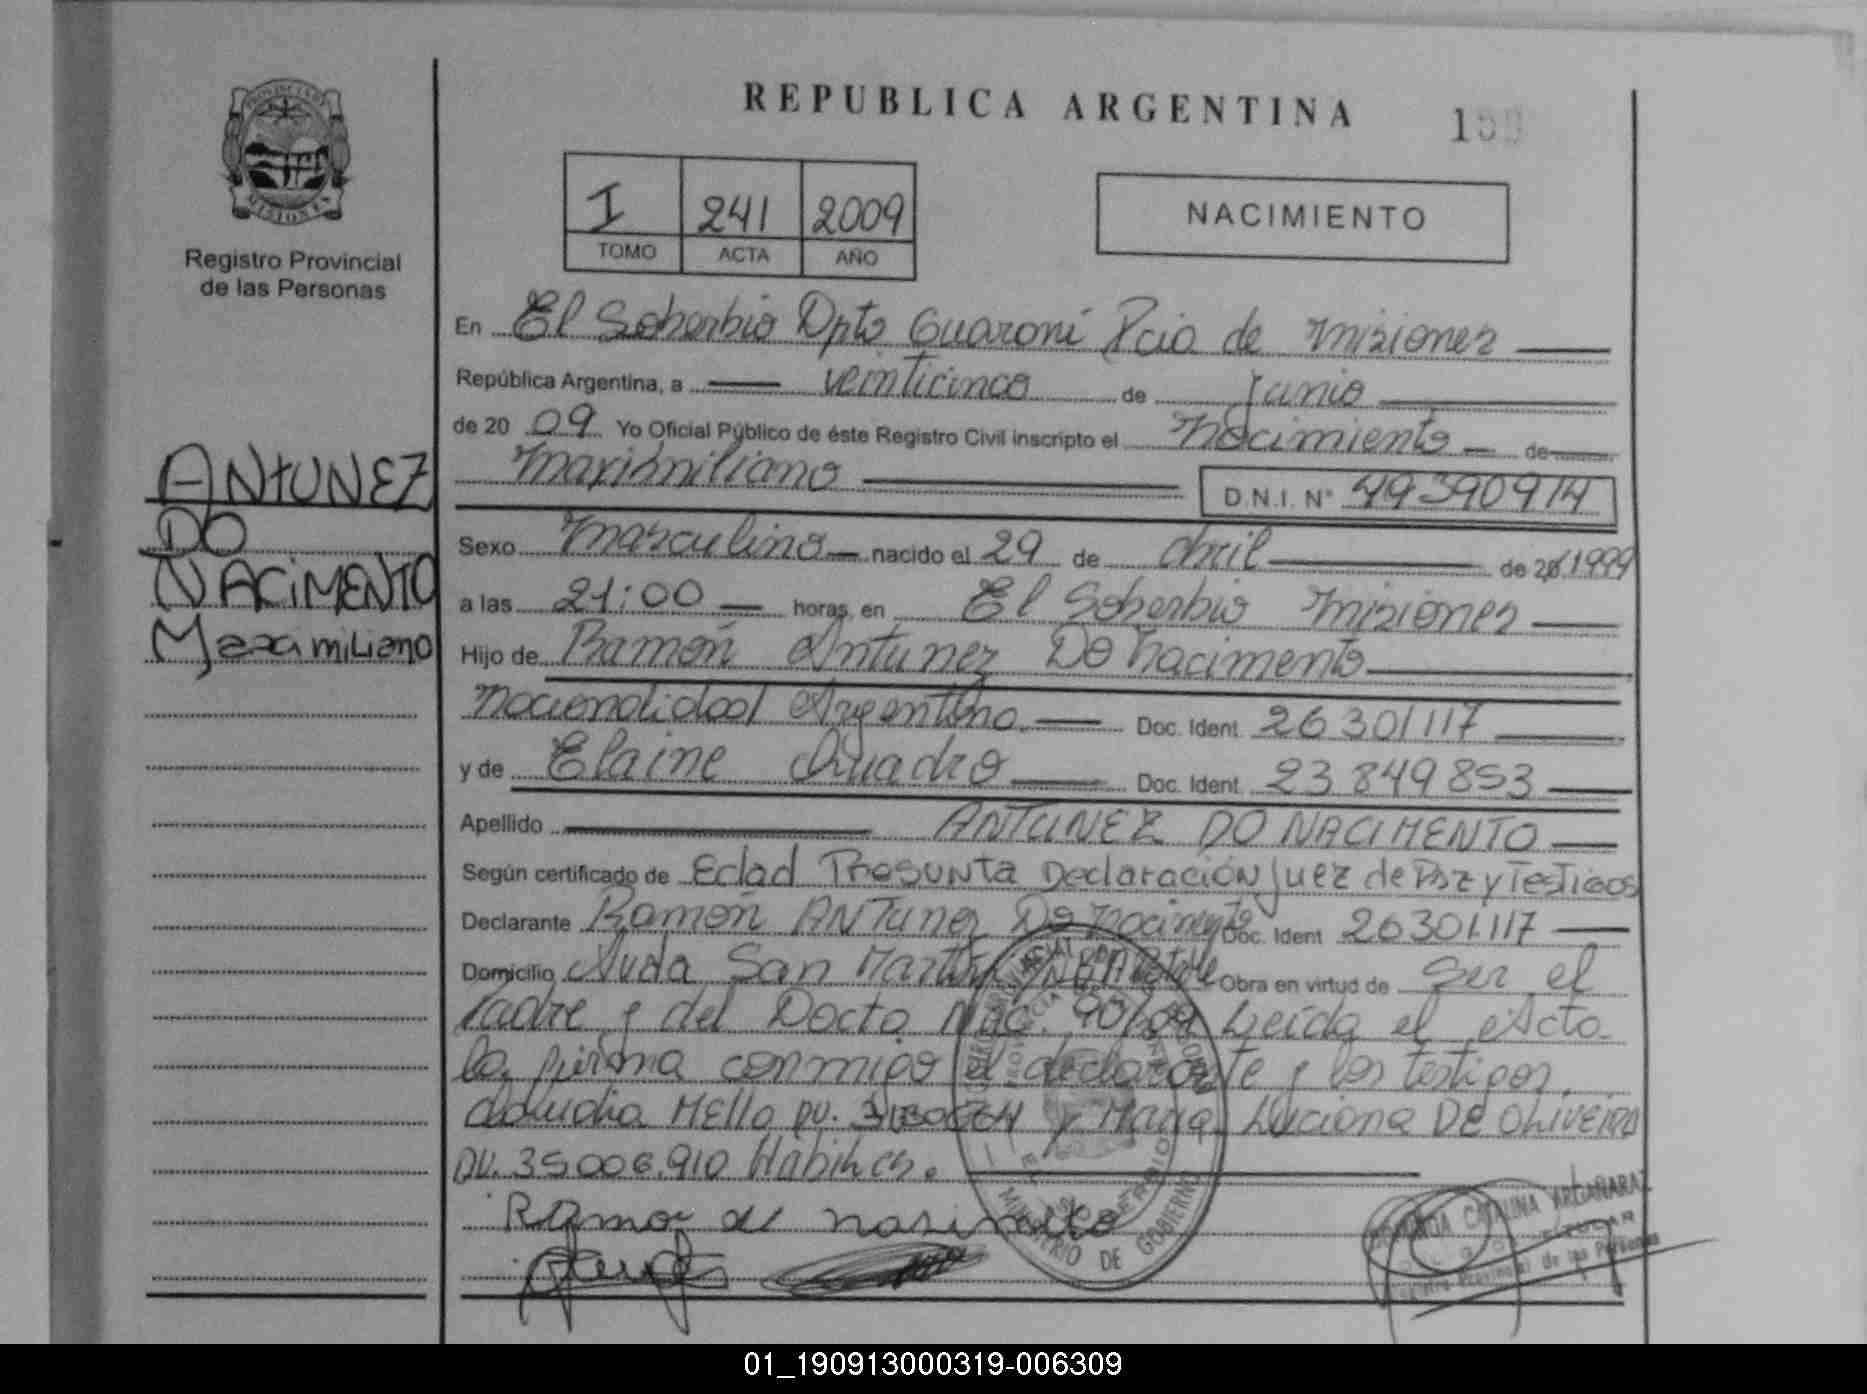 PROVINCIA DE
MISIONES
Registro Provincial
de las Personas
REPUBLICA ARGENTINA
I 241 2009
TOMO ACTA AÑO
NACIMIENTO
En El Soberbio Dpto Guaraní Pcia de Misiones
República Argentina, a veinticinco de Junio
de 20 09 Yo Oficial Público de éste Registro Civil inscripto el Nacimiento de
Maximiliano D.N.I. N° 49390914
ANTUNEZ
DO
NACIMENTO
Maximiliano
Sexo Masculino nacido el 29 de Abril de 20 1999
a las 21:00 horas, en El Soberbio Misiones
Hijo de Ramón Antunez Do Nacimento
Nacionalidad Argentino Doc. Ident. 26 301 117
y de Elaine Quadro Doc. Ident. 23 849 853
Apellido ANTUNEZ DO NACIMENTO
Según certificado de Edad Presunta Declaración Juez de Paz y Testigos
Declarante Ramón ANTunez Do Nacimento Doc. Ident 26301.117
Domicilio Avda San Martín Obra en virtud de ser el
Padre y del Docto Nac. 90/09 Leída el Acta
la firma conmigo el declarante y los testigos.
Claudia Mello DU. y Maria Luciana DE OLIVEIRA
DU. 35.006.910 Habiles.
Ramon de nasimeto
MINISTERIO DE GOBIERNO
CATALINA ARGAÑARAZ
Registro Provincial de las Personas
01_190913000319-006309